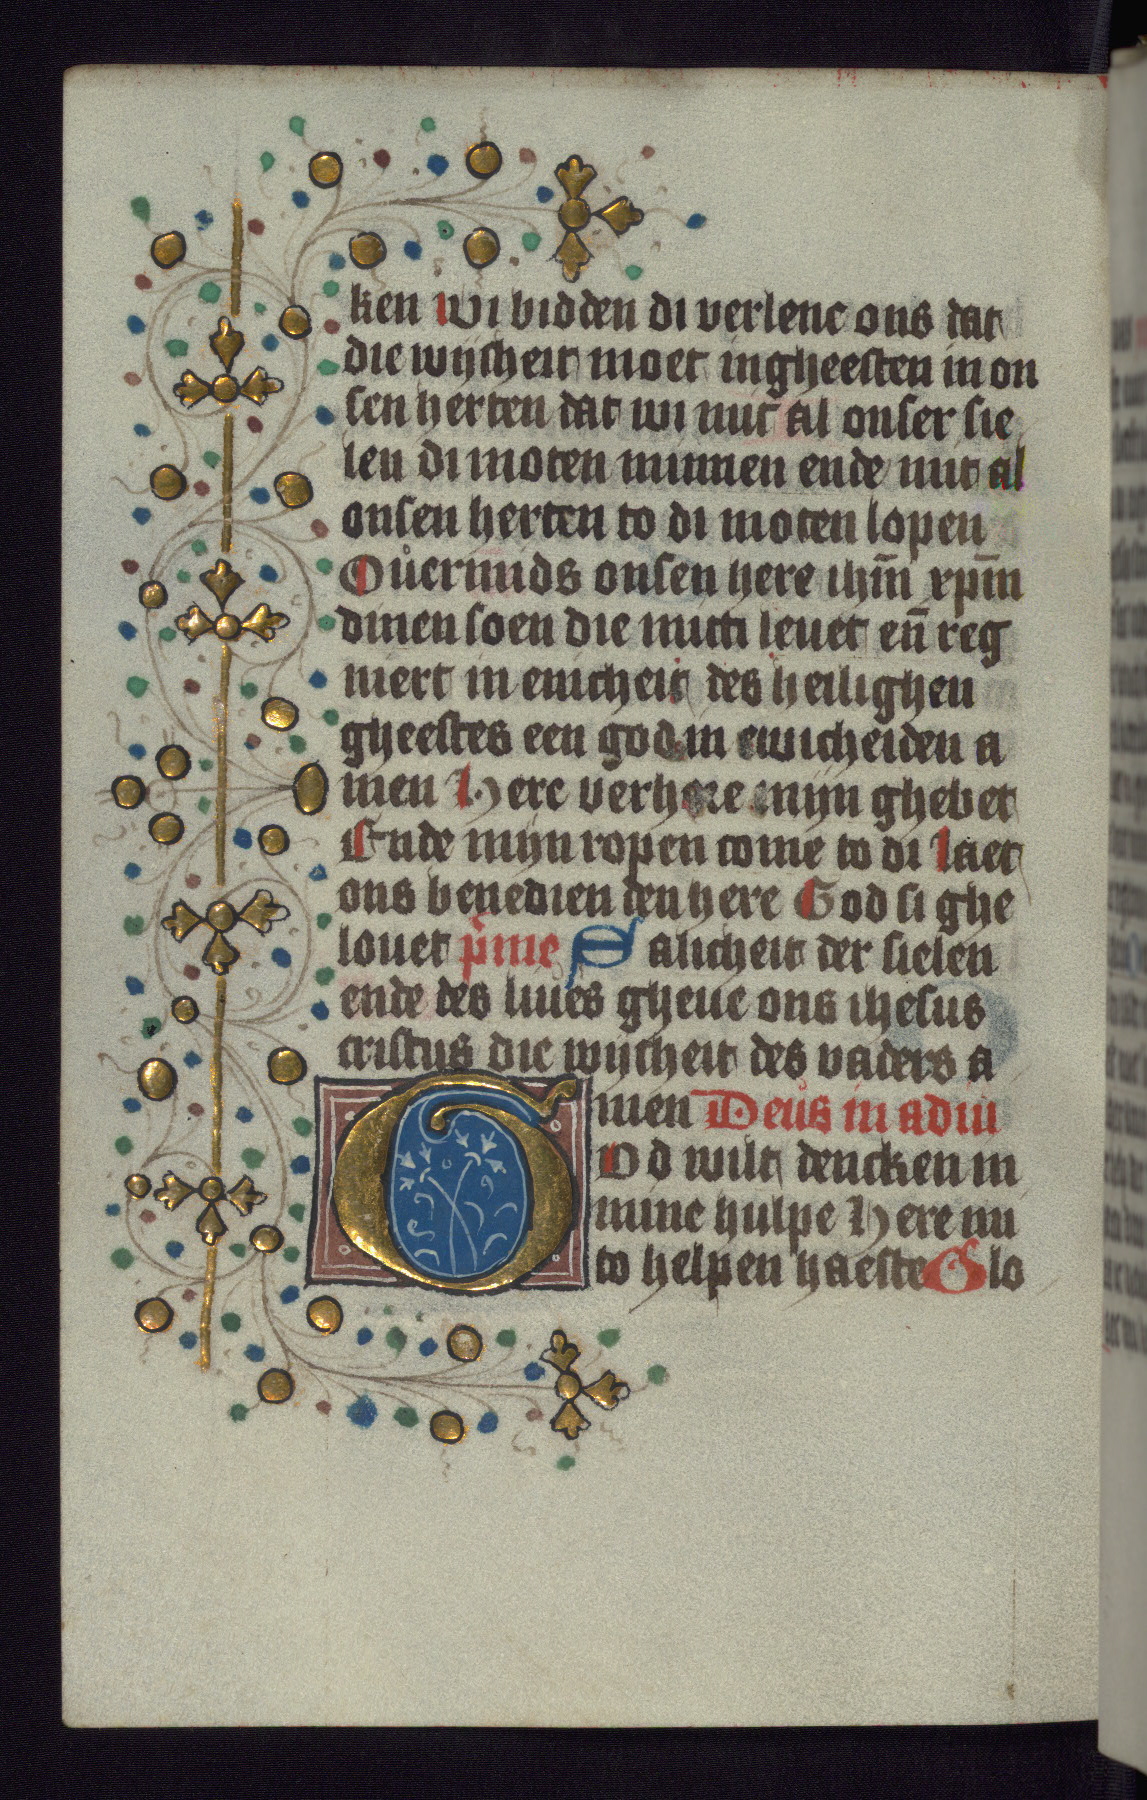 ken wi bidden di verlene ons dat
die wijsheit moet ingheesten in on
sen herten dat wi mit al onser sie
len di moten minnen ende mit al
onsen herten to di moten lopen
Ouermids onsen here ihm̄ xpm̄
dinen soen die mitti leuet en̄ reg
niert in enicheit des heilighen
gheestes een god in ewicheiden a
men Here verhore mijn ghebet
Ende mijn ropen come to di Laet
ons benedien den here God si ghe
louet p̄me Salicheit der sielen
ende des liues gheue ons ihesus
cristus die wijsheit des vaders a
men Deus in adiu
God wilt dencken in
mine hulpe Here mi
to helpen haeste Glo